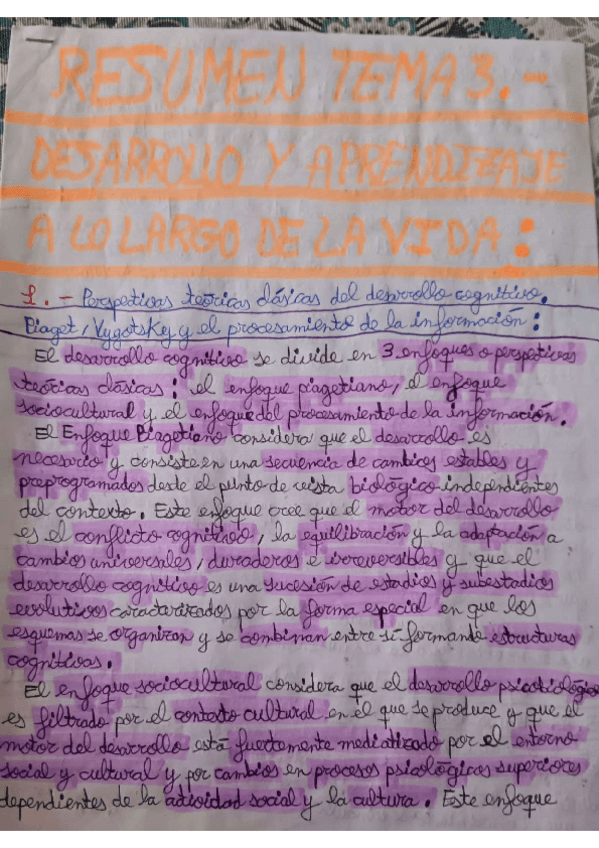 RESUMEN TEMA 3.-
DESARROLLO Y APRENDIZAJE
A LO LARGO DE LA VIDA:
1.- Perspectivas teóricas clásicas del desarrollo cognitivo.
Piaget, Vygotsky y el procesamiento de la información:
El desarrollo cognitivo se divide en 3 enfoques o perspectivas
teóricas clásicas: el enfoque piagetiano, el enfoque
sociocultural y el enfoque del procesamiento de la información.
El Enfoque Piagetiano considera que el desarrollo es
necesario y consiste en una secuencia de cambios estables y
preprogramados desde el punto de vista biológico independientes
del contexto. Este enfoque cree que el motor del desarrollo
es el conflicto cognitivo, la equilibración y la adaptación a
cambios universales, duraderos e irreversibles y que el
desarrollo cognitivo es una sucesión de estadios y subestadios
evolutivos caracterizados por la forma especial en que los
esquemas se organizan y se combinan entre sí formando estructuras
cognitivas.
El enfoque sociocultural considera que el desarrollo psicobiológico
es filtrado por el contexto cultural en el que se produce y que el
motor del desarrollo está fuertemente mediatizado por el entorno
social y cultural y por cambios en procesos psicológicos superiores
dependientes de la actividad social y la cultura. Este enfoque